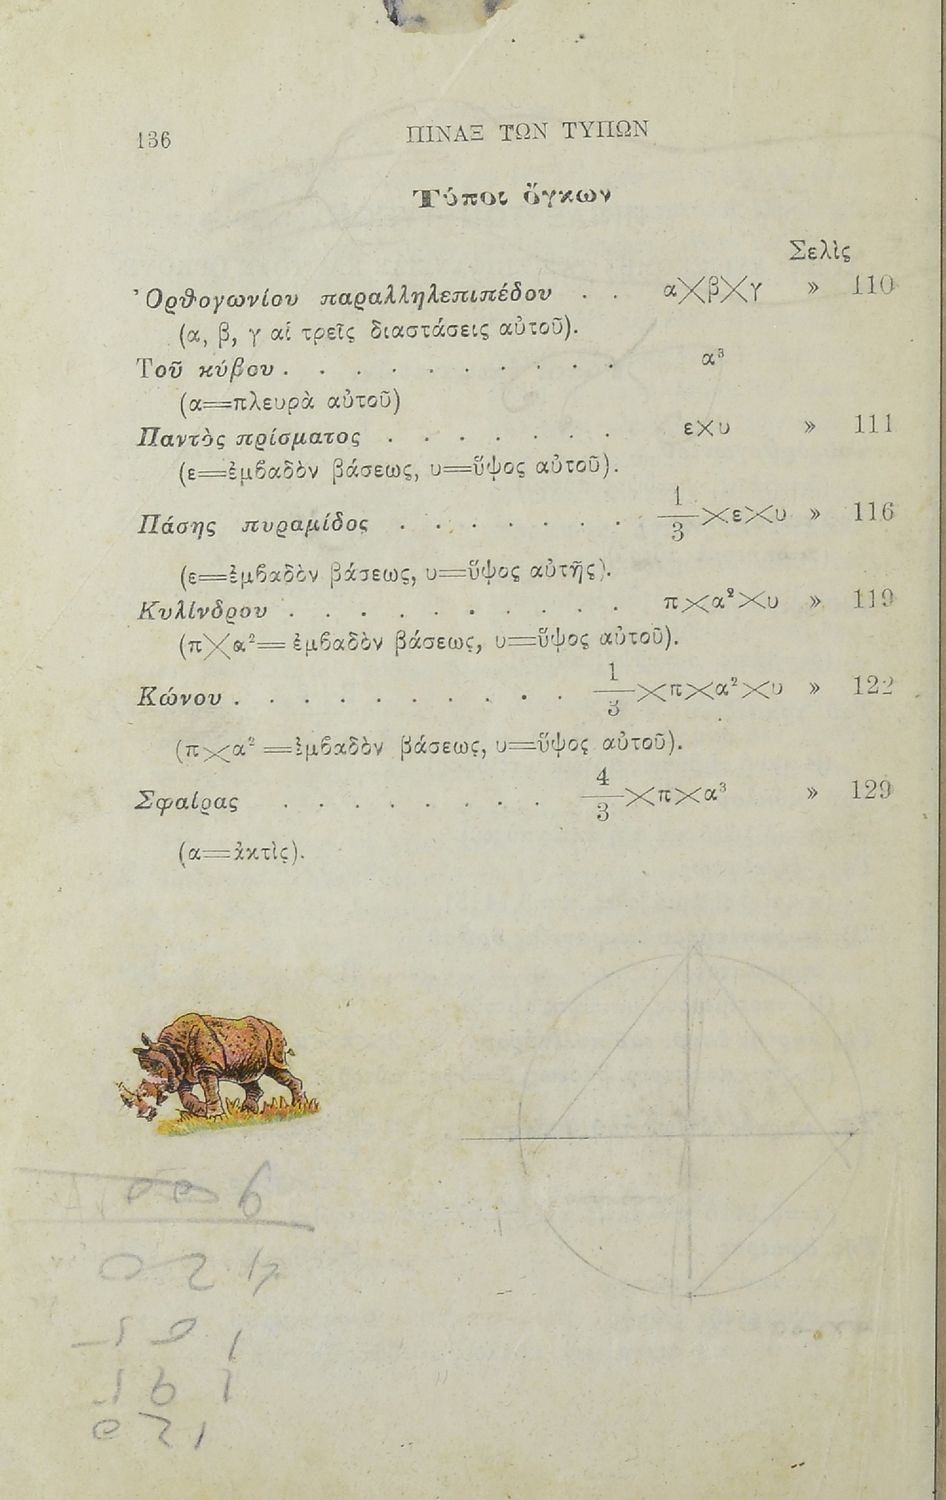 136
ΠΙΝΑΞ ΤΩΝ ΤΥΠΩΝ
Τύποι ὄγκων
Σελὶς
Ὀρθογωνίου παραλληλεπιπέδου . . α×β×γ » 110
(α, β, γ αἱ τρεῖς διαστάσεις αὐτοῦ).
Τοῦ κύβου . . . . . . . . . . α³
(α=πλευρὰ αὐτοῦ)
Παντὸς πρίσματος . . . . . . . ε×υ » 111
(ε=ἐμβαδὸν βάσεως, υ=ὕψος αὐτοῦ).
Πάσης πυραμίδος . . . . . . . 1/3×ε×υ » 116
(ε=ἐμβαδὸν βάσεως, υ=ὕψος αὐτῆς).
Κυλίνδρου . . . . . . . . . . π×α²×υ » 119
(π×α²=ἐμβαδὸν βάσεως, υ=ὕψος αὐτοῦ).
Κώνου . . . . . . . . . . 1/3×π×α²×υ » 122
(π×α²=ἐμβαδὸν βάσεως, υ=ὕψος αὐτοῦ).
Σφαίρας . . . . . . . . 4/3×π×α³ » 129
(α=ἀκτὶς).